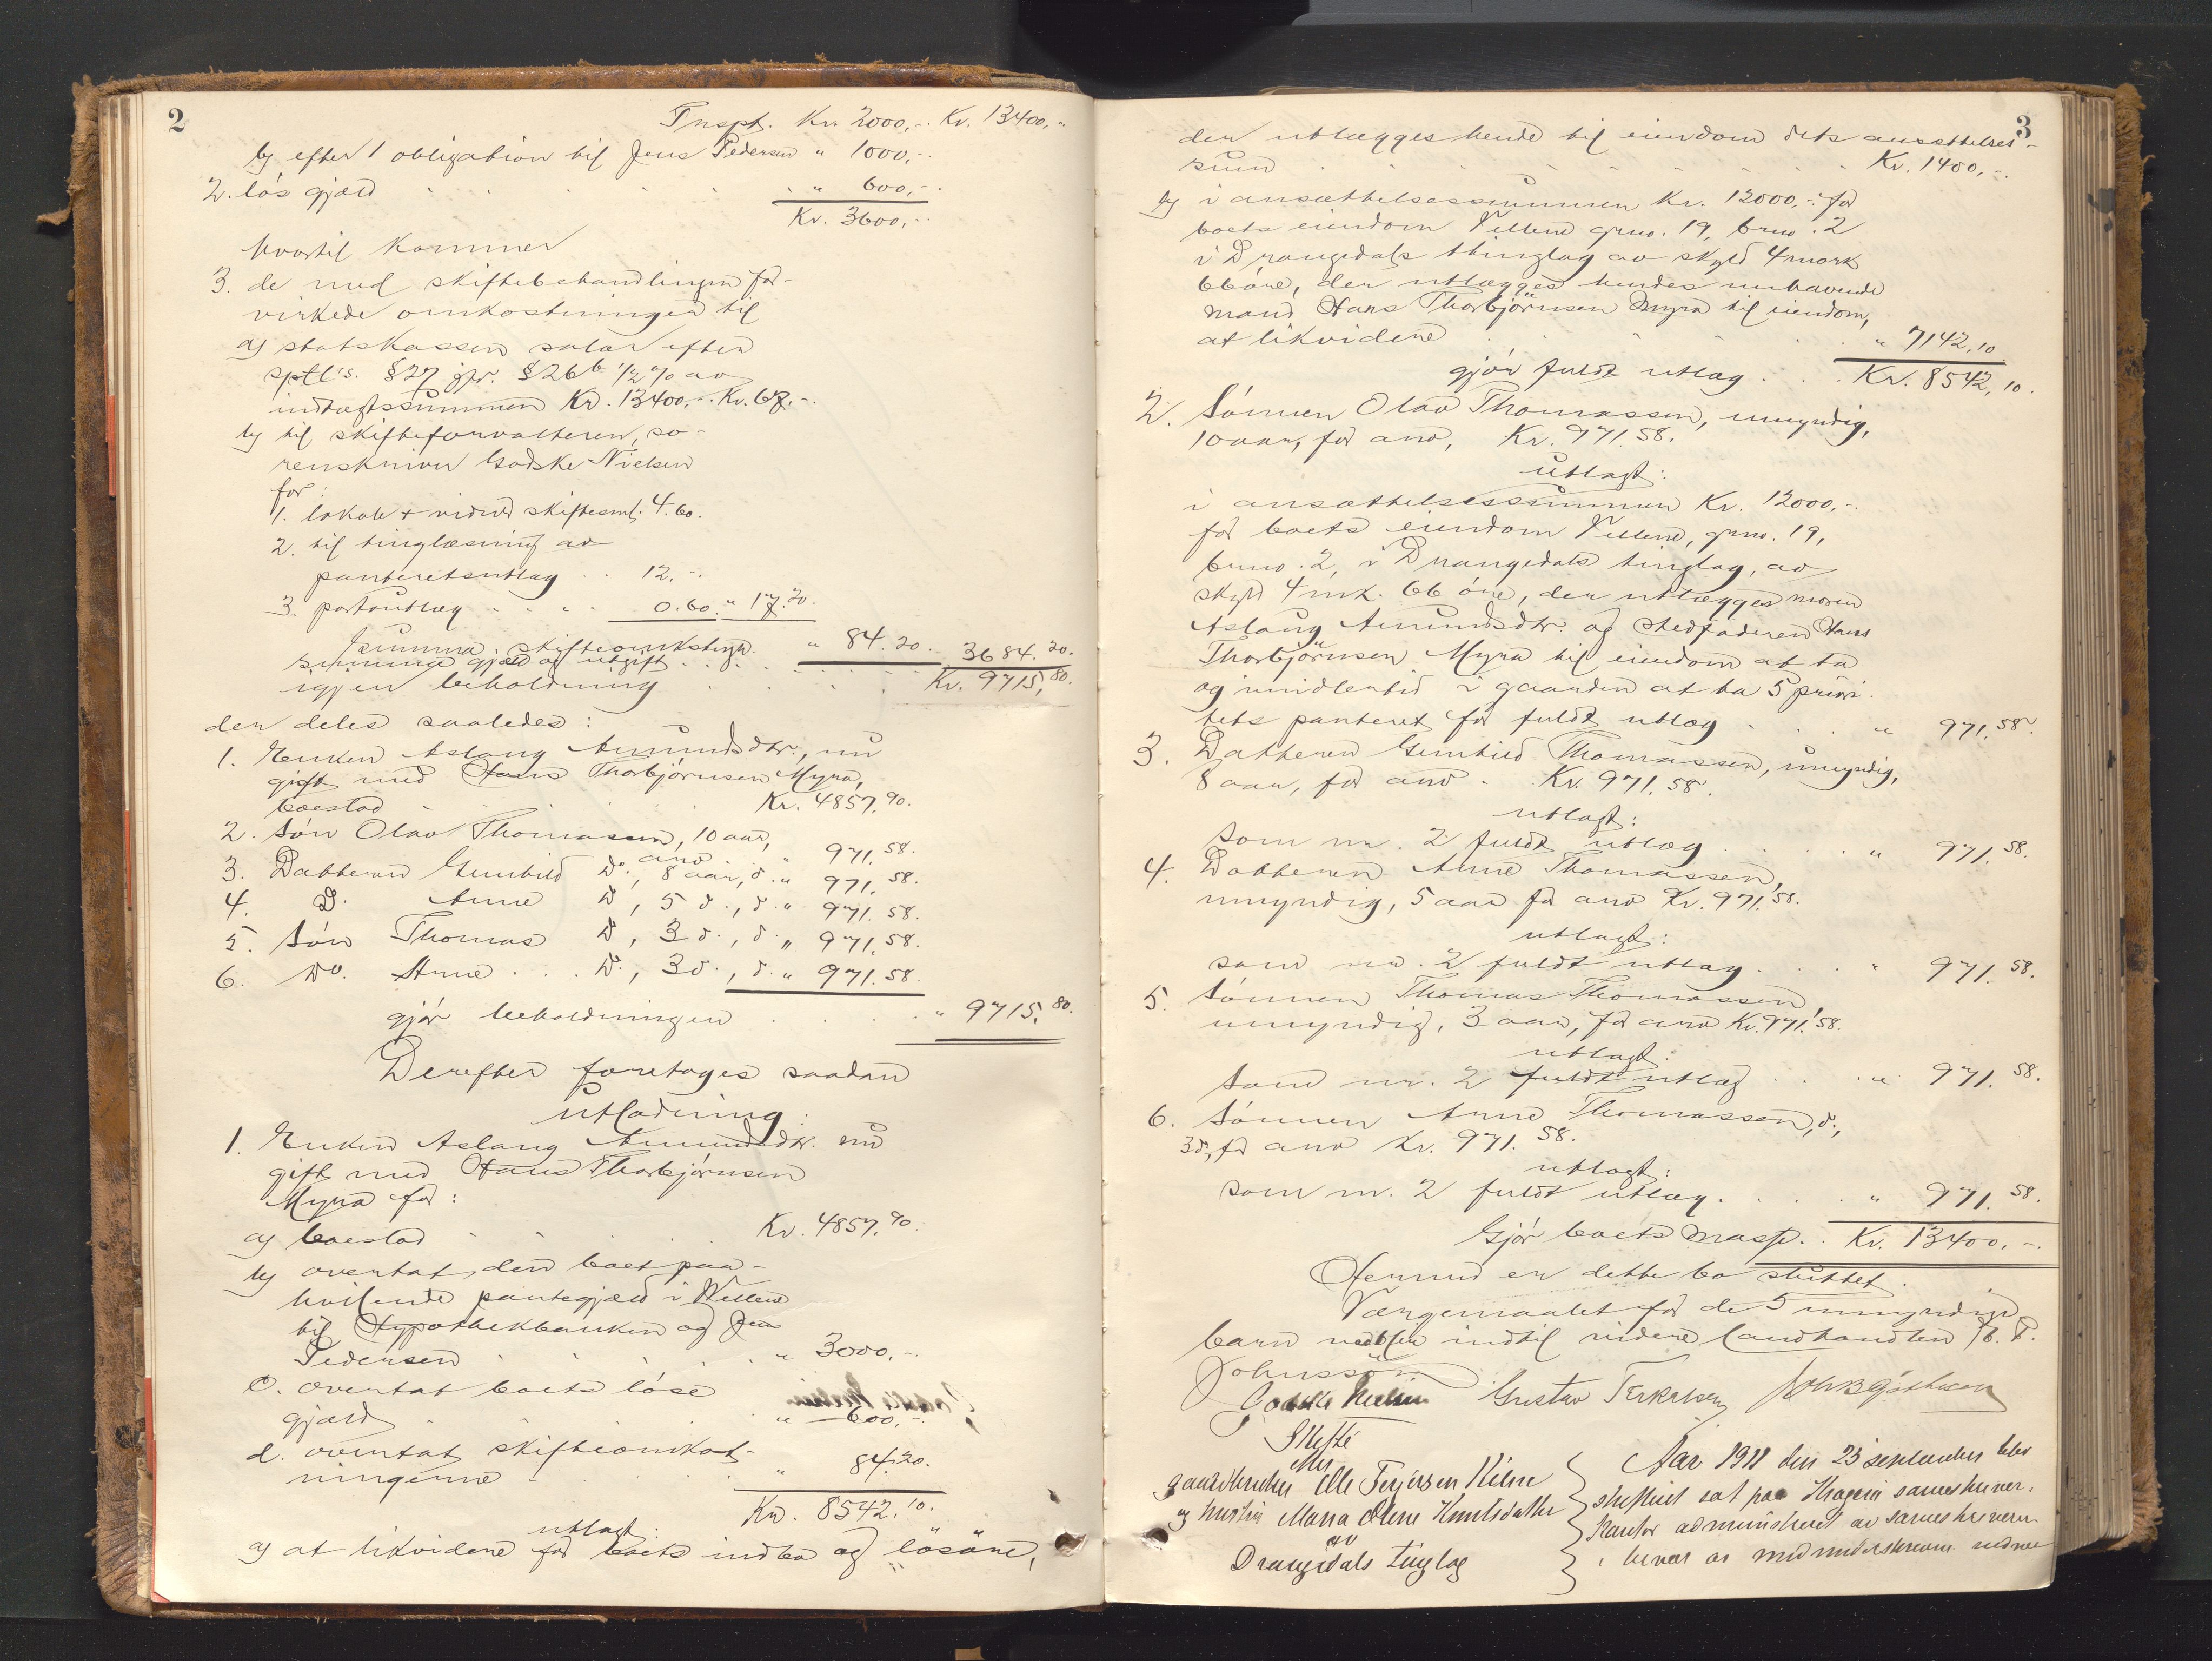 2
Trspt. Kr. 2000,-. Kr. 13400,-
b) efter 1 obligation til Jens Pedersen " 1000,-.
2. løs gjæld . . . . . . " 600,-.
Kr. 3600,-.
hvortil kommer
3. de med skiftebehandlingen for-
virkede omkostninger til
a) statskassen salær efter
sptl's. §27 jfr. §26 b 1/2 % av
indtægtssummen Kr. 13400,-. Kr. 67,-.
b) til skifteforvalteren, so-
renskriver Godske-Nielsen
for:
1. lokale + vidner skiftesml. 4.60.
2. til tinglæsning av
panteretsutlæg . . 12,-.
3. portoutlæg . . . . 0.60. " 17.20.
summa skifteomkstngr. " 84.20.
summa gjæld og utgift . . . . 3684.20.
igjen beholdning . . . . Kr. 9715,80.
der deles saaledes:
1. Enken Aslaug Amundsdtr., nu
gift med Hans Thorbjörnsen Myra,
boeslod . . . . . Kr. 4857.90.
2. Søn Olav Thomassen, 10 aar,
arv " 971.58.
3. Datteren Gunhild Do., 8 aar, d. " 971.58.
4. D. Anne D, 5 d., d. " 971.58.
5. Søn Thomas D, 3 d., d. " 971.58.
6. Do. Arne . . . D., 3 d., d. " 971.58.
gjør beholdningen . . . . . " 9715.80.
Derefter foretages saadan
utlodning:
1. Enken Aslaug Amundsdtr. nu
gift med Hans Thorbjørnsen
Myra for:
a) boeslod . . . . . Kr. 4857.90.
b) overtat den boet paa-
hvilende pantegjæld i Vellene
til Hypothekbanken og Jens
Pedersen . . . . . . " 3000,-.
c. overtat boets løse
gjæld . . . . . . " 600,-.
d. overtat skifteomkost-
ningerne . . . . . " 84.20.
Kr. 8542.10.
utlagt:
a) at likvidere for boets indbo og løsøre,
3
der utlægges hende til eiendom dets ansættelses-
sum . . . . . . . . Kr. 1400,-.
b) i ansættelsessummen Kr. 12000,-. for
boets eiendom Vellene grno. 19, brno. 2
i Drangedals thinglag av skyld 4 mark
66 øre, der utlægges hendes nuhavende
mand Hans Thorbjörnsen Myra til eiendom,
at likvidere . . . . . " 7142.10
gjør fuldt utlæg . . . Kr. 8542,10.
2. Sønnen Olav Thomassen, umyndig,
10 aar, for arv, Kr. 971.58.
utlagt:
i ansættelsessummen Kr. 12000,-.
for boets eiendom Vellene, grno. 19,
brno. 2, i Drangedals tinglag, av
skyld 4 mk. 66 øre, der utlægges moren
Aslaug Amundsdtr. og stedfaderen Hans
Thorbjörnsen Myra til eiendom at ta
og imidlertid i gaarden at ha 5 priori-
tets panteret for fuldt utlæg . . . " 971.58.
3. Datteren Gunhild Thomassen, umyndig,
8 aar, for arv . . Kr. 971.58.
utlagt:
som nr. 2 fuldt utlæg . . . . " 971.58.
4. Datteren Anne Thomassen,
umyndig, 5 aar for arv Kr. 971.58.
utlagt:
som nr. 2 fuldt utlæg . . . " 971.58.
5. Sønnen Thomas Thomassen,
umyndig, 3 aar, for arv Kr. 971.58.
utlagt:
som nr. 2 fuldt utlæg . . . " 971.58.
6. Sønnen Arne Thomassen, d.,
3 d., for arv Kr. 971.58.
utlagt:
som nr. 2 fuldt utlæg . . . . " 971.58.
Gjør boets masse . . Kr. 13400.-.
Hermed er dette bo sluttet.
Værgemaalet for de 5 umyndige
barn indtil videre landhandler
Johnsson
Godske Nielsen Gustav Terkelsen
Skifte
efter
gaardbruker Ole Terjersen
og hustru Maria Olene Knutsdatter
av
Drangedals tinglag
Aar 1911 den 23 september blev
skifteret sat paa Kragerø sorenskriver-
kontor administreret av sorenskriveren
i nærvær av medunderskrevne vidner